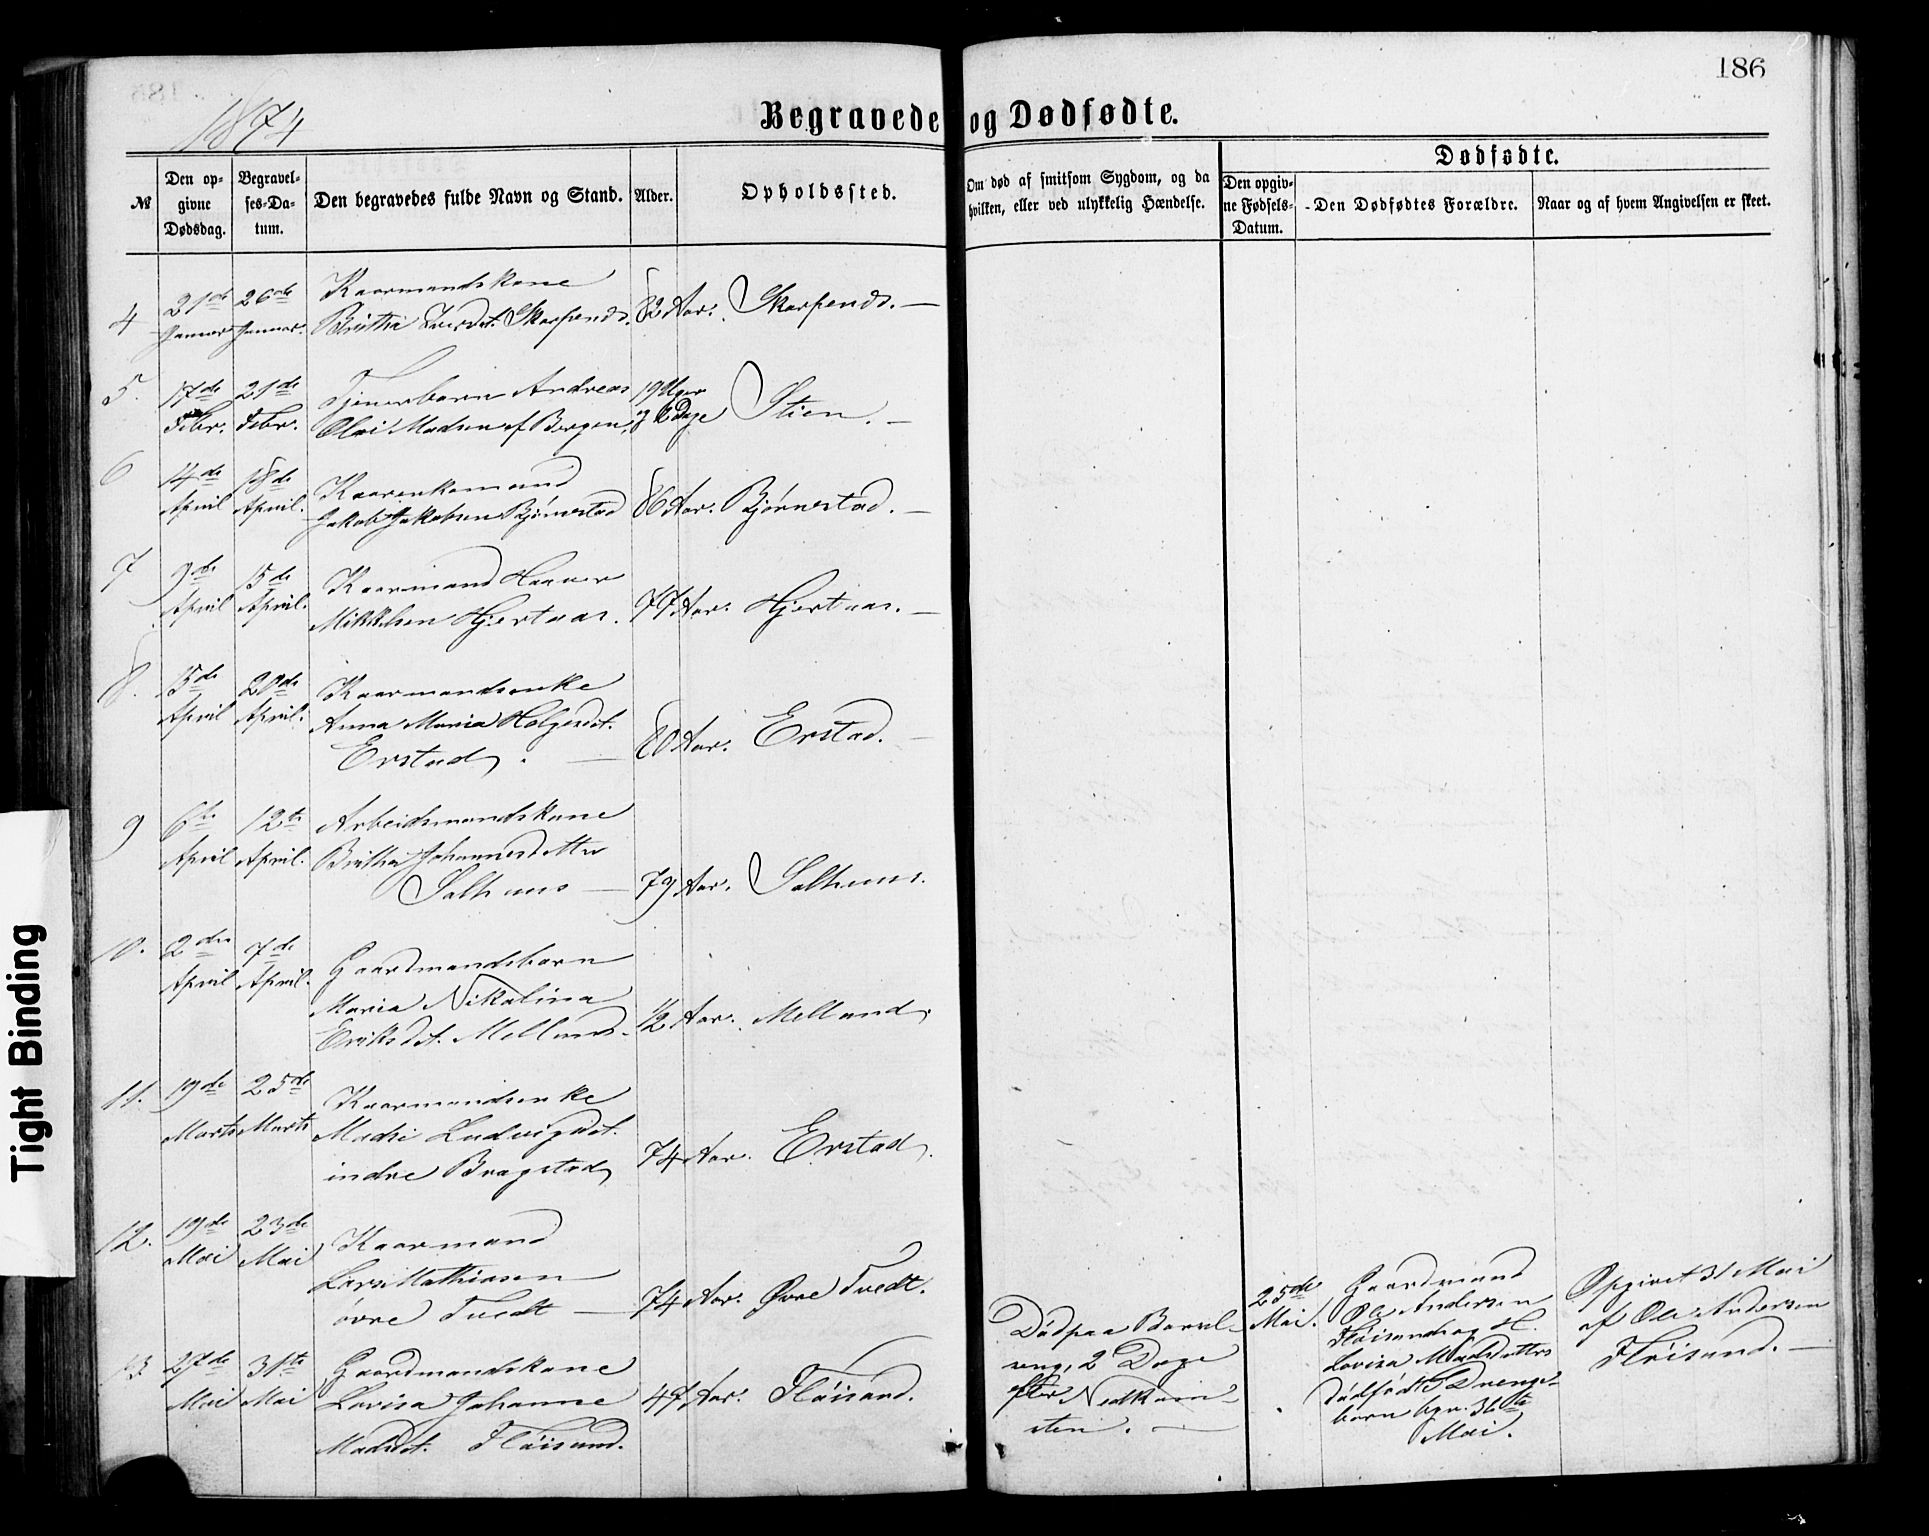 186
1874
Begravede og Dødfødte.
Dødfødte.
№
Den op-
givne
Dødsdag.
Begravel-
ses-Da-
tum.
Den begravedes fulde Navn og Stand.
Alder.
Opholdssted.
Om død af smitsom Sygdom, og da
hvilken, eller ved ulykkelig Hændelse.
Den opgiv-
ne Fødsels-
Datum.
Den Dødfødtes Forældre.
Naar og af hvem Angivelsen er skeet.
4
21de
Januar
26de
Januar.
Kaarmandskone
Brithe Iversdt. Skarpends.
82 Aar.
Skarpends. —
5.
17de
Febr.
21de
Febr.
Tjenerbarn Andreas
Olai Madsen af Bergen.
19 Uger
2 Dage
Stien. —
6
14de
April
18de
April.
Kaarenkemand
Jakob Jakobsen Bjørnestad
86 Aar.
Bjørnestad. —
7
9de
April
15de
April.
Kaarmand Haaver
Mikkelsen Hjertaas.
77 Aar.
Hjertaas. —
8.
15de
April
20de
April.
Kaarmandsenke
Anna Maria Helgesdt.
Erstad. —
80 Aar.
Erstad. —
9
6te
April
12te
April.
Arbeidsmandskone
Brithe Johannesdatter
Salhuus —
79 Aar.
Salhuus.
10.
2den
April
7de
April.
Gaardmandsbarn
Maria Nikolina
Eriksdt. Melland.
1/2 Aar.
Melland.
11.
19de
Marts
25de
Marts
Kaarmandsenke
Madsi Ludvigsdt.
indre Bragstad
74 Aar.
Erstad.
12.
19de
Mai
23de
Mai
Kaarmand
Lars Mathiasen
øvre Tvedt —
74 Aar.
Øvre Tvedt.
13
27de
Mai
31te
Mai
Gaardmandskone
Lovisa Johanne
Madsdt. Fløisand.
47 Aar.
Fløisand.
Død paa Barsel-
seng, 2 Dage
efter Nedkom-
sten. —
25de
Mai.
Gaardmand
Ole Andersen
Fløisand og H.
Lovisa Madsdatters
dødfødte Drenge-
barn bgr. 31te
Mai.
Opgivet 31 Mai
af Ole Andersen
Fløisand. —
Tight Binding